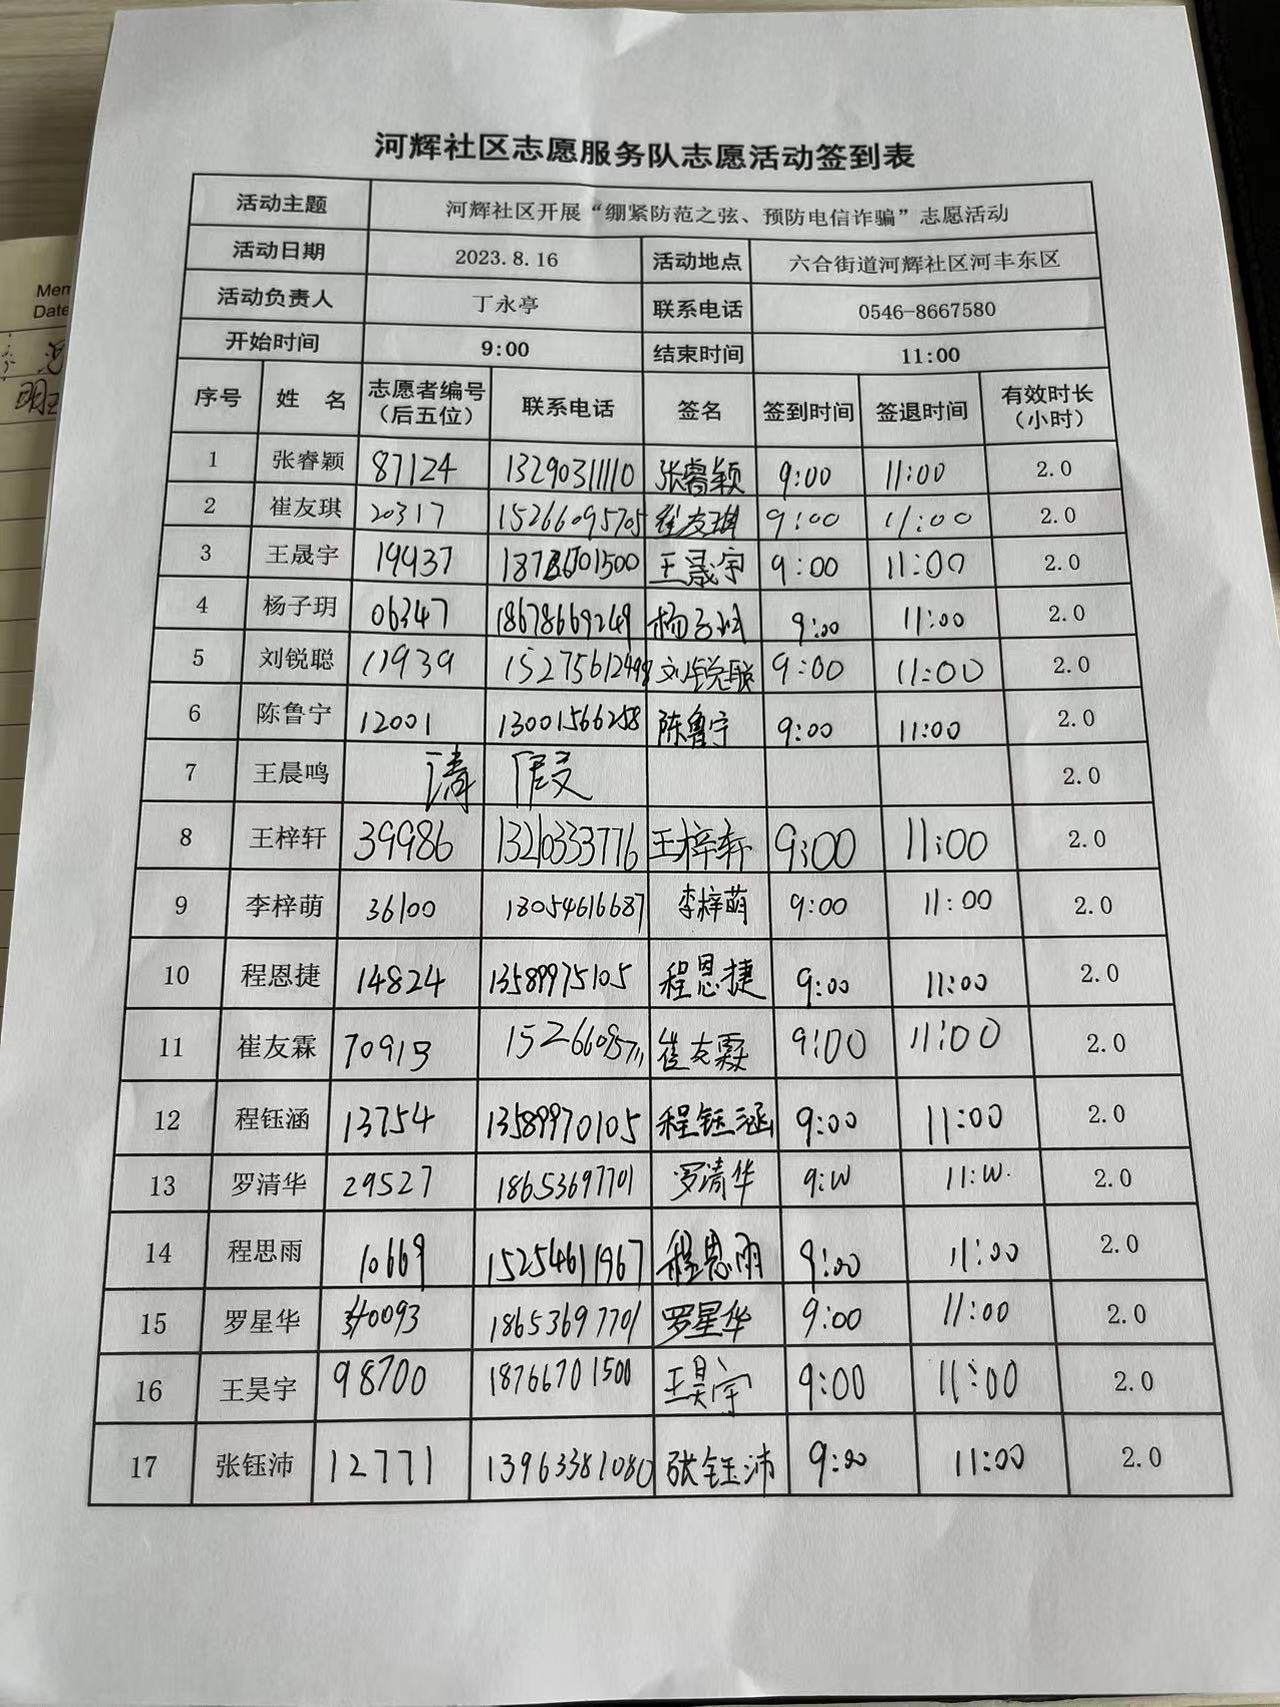 河辉社区志愿服务队志愿活动签到表
活动主题 河辉社区开展“绷紧防范之弦、预防电信诈骗”志愿活动
活动日期 2023.8.16 活动地点 六合街道河辉社区河丰东区
活动负责人 丁永亭 联系电话 0546-8667580
开始时间 9:00 结束时间 11:00
序号 姓 名 志愿者编号（后五位） 联系电话 签名 签到时间 签退时间 有效时长（小时）
1 张睿颖 87124 13290311110 张睿颖 9:00 11:00 2.0
2 崔友琪 20317 15266095705 崔友琪 9:00 11:00 2.0
3 王晟宇 19937 王晟宇 9:00 11:00 2.0
4 杨子玥 06347 18678669249 杨子玥 9:00 11:00 2.0
5 刘锐聪 11939 刘锐聪 9:00 11:00 2.0
6 陈鲁宁 12001 13001566258 陈鲁宁 9:00 11:00 2.0
7 王晨鸣 请 假 2.0
8 王梓轩 39986 13210333776 王梓轩 9:00 11:00 2.0
9 李梓萌 36100 18054616687 李梓萌 9:00 11:00 2.0
10 程恩捷 14824 13589975105 程恩捷 9:00 11:00 2.0
11 崔友霖 70913 崔友霖 9:00 11:00 2.0
12 程钰涵 13754 13589970105 程钰涵 9:00 11:00 2.0
13 罗清华 29527 18653697701 罗清华 9:00 11:00 2.0
14 程思雨 10669 15254611967 程思雨 9:00 11:00 2.0
15 罗星华 18653697701 罗星华 9:00 11:00 2.0
16 王昊宇 98700 18766701500 王昊宇 9:00 11:00 2.0
17 张钰沛 12771 13963381080 张钰沛 9:00 11:00 2.0